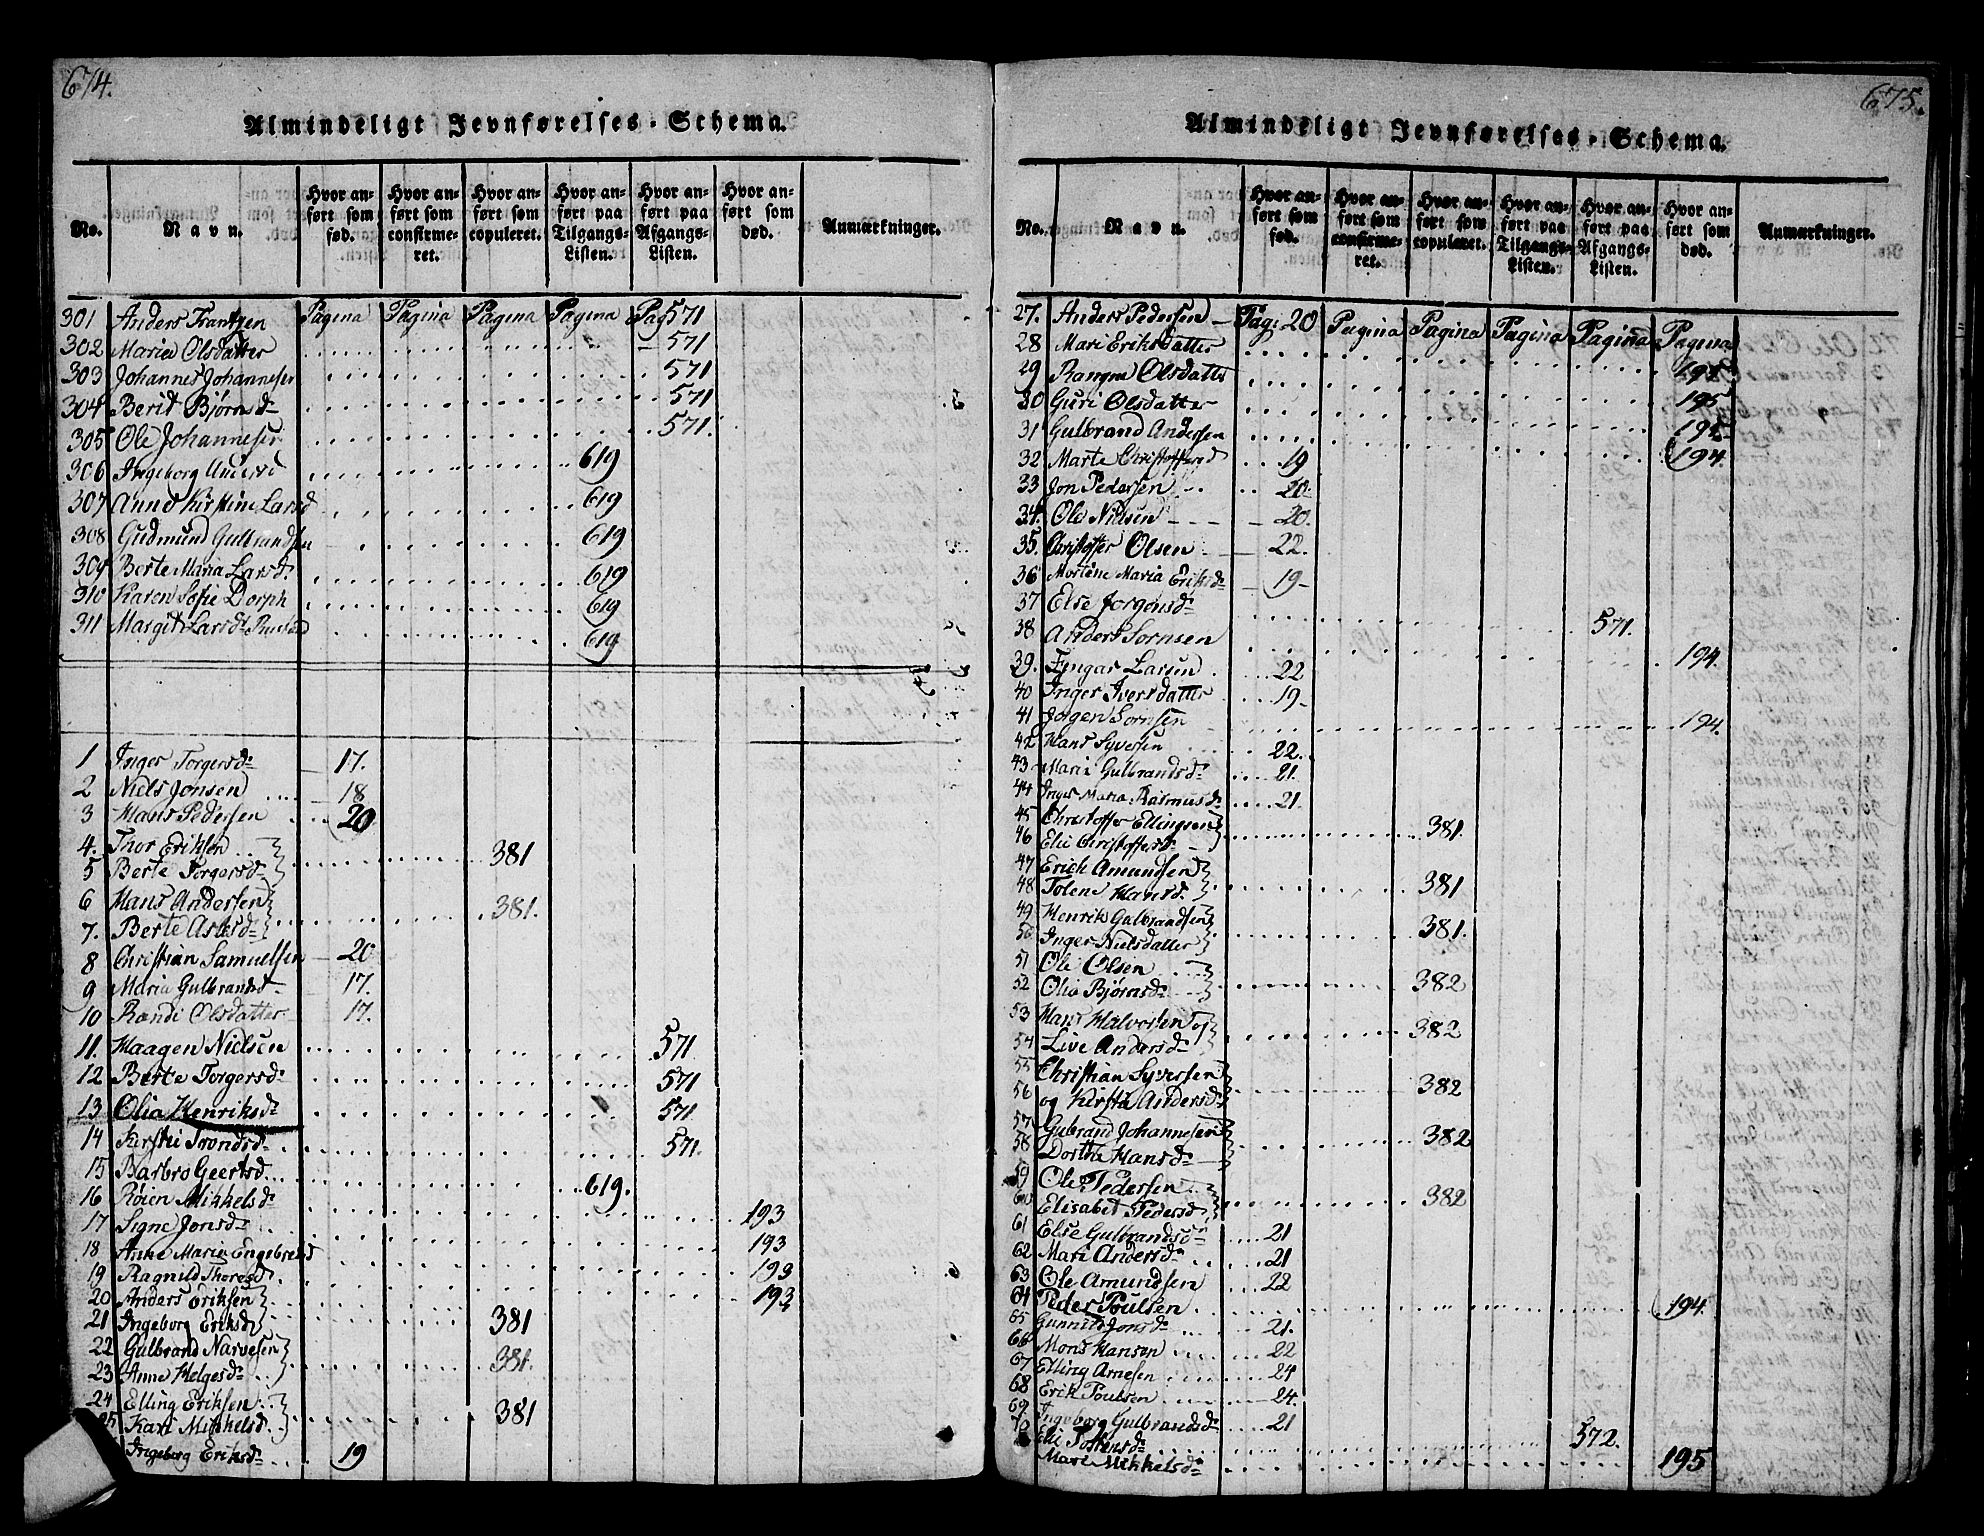 674.
Almindeligt Jevnførelses-Schema.
No. Navn. Hvor anført som fød. Hvor anført som confirmeret. Hvor anført som copuleret. Hvor anført paa Tilgangs-Listen. Hvor anført paa Afgangs-Listen. Hvor anført som død. Anmærkninger.
301 Anders Frantzen Pagina Pagina Pagina Pagina Pag 571
302 Maria Olsdatter 571
303 Johannes Johannesen 571
304 Berit Bjørnsd 571
305 Ole Johannesen 571.
306 Ingeborg Andersd 619
307 Anne Kirstine Larsd 619
308 Gudmund Gulbrandsen 619
309 Berte Maria Larsd. 619
310 Karen Sofie Dorph 619
311 Margit Larsd 619
1 Inger Torgersd 17.
2 Niels Jonsen 18
3 Hans Pedersen 20
4. Thor Eriksen
5 Berte Torgersd 381
6 Hans Andersen
7. Berte Aslesd 381.
8 Christian Samuelsen 20
9 Maria Gulbrandsd 17.
10 Randi Olsdatter 17.
11. Haagen Nielsen 571
12 Berte Torgersd 571
13 Olia Henriksd 571
14 Kersti Trondsd. 571.
15 Barbro Geertsd 619.
16 Røien Mikkelsd 193
17 Signe Jonsd 193
18 Anne Maria Engebretsd 193
19 Ragnild Thoresd 193
20 Anders Eriksen
21 Ingeborg Eriksd 381
22 Gulbrand Narvesen
23 Anne Helgesd 381.
24 Elling Eriksen
25 Kari Mikkelsd 381
Ingeborg Eriksd 19
675.
Almindeligt Jevnførelses-Schema.
No. Navn. Hvor anført som fød. Hvor anført som confirmeret. Hvor anført som copuleret. Hvor anført paa Tilgangs-Listen. Hvor anført paa Afgangs-Listen. Hvor anført som død. Anmærkninger.
27. Anders Pedersen Pag: 20 Pagina Pagina Pagina Pagina Pagina
28 Mari Eriksdatter 195
29 Rangne Olsdatter 195
30 Guri Olsdatter 195
31 Gulbrand Andersen 194
32 Marte Christoffersd 19
33 Jon Pedersen 20
34. Ole Nielsen 20.
35. Christoffer Olsen 22.
36 Mortene Maria Eriksd 19
37 Else Jorgensd 571.
38 Anders Sornsen 194.
39. Larsen 22
40 Inger Iversdatter 19
41 Jorgen Sornsen 194.
42 Hans Syversen 22.
43 Mari Gulbrandsd 21.
44 Inger Maria Rasmusd 21.
45 Christoffer Ellingsen
46 Elie Christoffersd 381.
47 Erich Amundsen
48 Tolene Hansd. 381
49 Henrik Gulbrandsen
50 Inger Nielsdatter 381.
51 Ole Olsen
52 Olia Bjørnsd 382
53 Hans Halvorsen og
54 Live Andersd 382
55 Christian Syversen
56 og Kirsti Andersd 382
57 Gulbrand Johannesen
58 Dorthe Hansd 382
59 Ole Pedersen
60 Elisabet Pedersd 382
61 Else Gulbrandsd 21
62 Mari Andersd 21
63 Ole Amundsen 22
64 Peder Poulsen 194.
65 Gunnild Jonsd 21.
66 Mons Hansen 22
67 Elling Arnesen 24
68 Erik Poulsen 24.
69 Ingeborg Gulbrandsd 21
70 Elie Tostensd 572.
Mari Mikkelsd 195